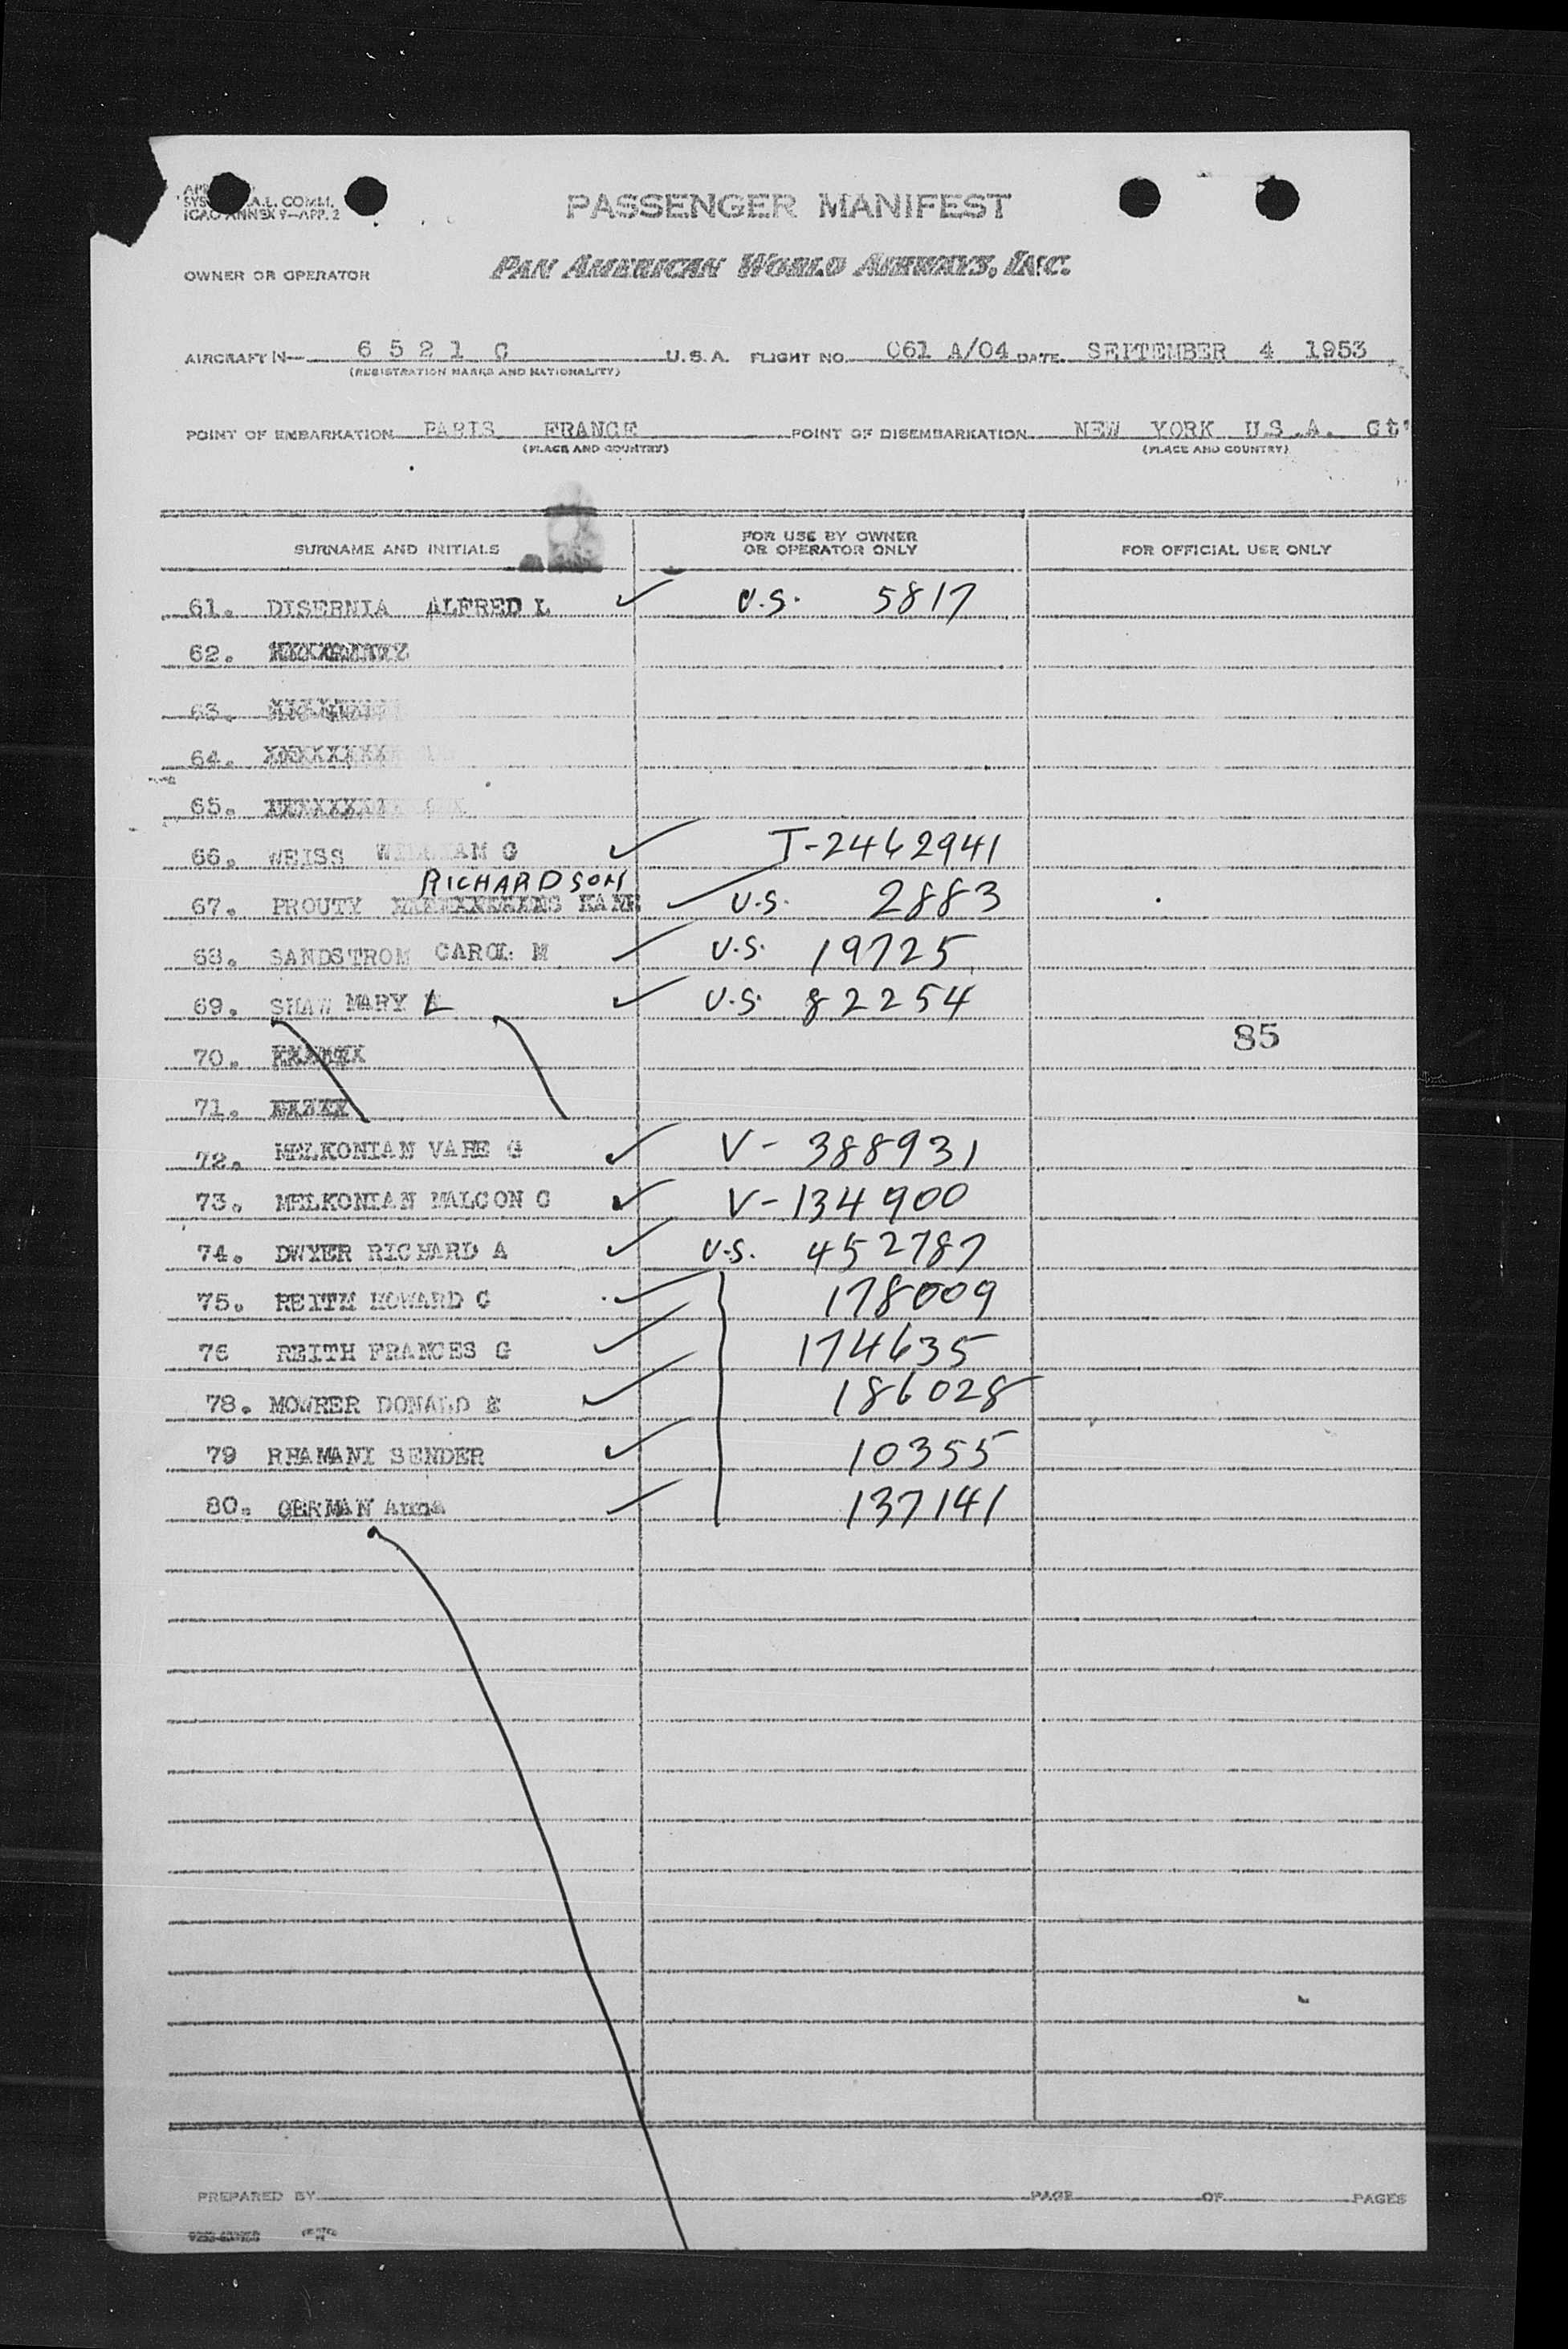 ICAO ANNEX 9—APP. 2
PASSENGER MANIFEST
OWNER OR OPERATOR PAN AMERICAN WORLD AIRWAYS, INC.
AIRCRAFT N— 6 5 2 1 C U.S.A. FLIGHT NO. 061 A/04 DATE SEPTEMBER 4 1953
(REGISTRATION MARKS AND NATIONALITY)
POINT OF EMBARKATION PARIS FRANCE POINT OF DISEMBARKATION NEW YORK U.S.A.
(PLACE AND COUNTRY) (PLACE AND COUNTRY)
SURNAME AND INITIALS FOR USE BY OWNER OR OPERATOR ONLY FOR OFFICIAL USE ONLY
61. DISERNIA ALFRED L U.S. 5817
62.
63.
64.
65.
66. WEISS WILLIAM G I-2462941
RICHARDSON
67. PROUTY U.S. 2883
68. SANDSTROM CAROL M U.S. 19725
69. SHAW MARY L U.S. 82254
85
70.
71.
72. MELKONIAN VAHE G V- 388931
73. MELKONIAN MALCON G V-134900
74. DWYER RICHARD A U.S. 452787
75. REITH HOWARD G 178009
76 REITH FRANCES G 174635
78. MOWRER DONALD E 186028
79 RHAMANI SENDER 10355
80. GERMAN Anna 137141
PREPARED BY PAGE OF PAGES